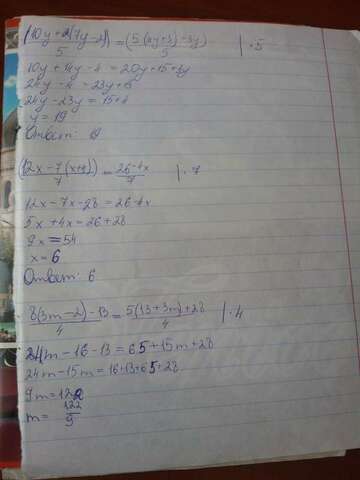 (10y+2(7y-2))/5 = (5(4y+3)+3y)/5 | ·5
10y+14y-4=20y+15+3y
24y-4=23y+15
24y-23y=15+4
y=19
Ответ: 19
(12x-7(x+4))/7 = (26-4x)/7 | ·7
12x-7x-28=26-4x
5x+4x=26+28
9x=54
x=6
Ответ: 6
(8(3m-2)-13)/4 = (5(13+3m)+28)/4 | ·4
24m-16-13=65+15m+28
24m-15m=16+13+65+28
9m=122
m=122/9